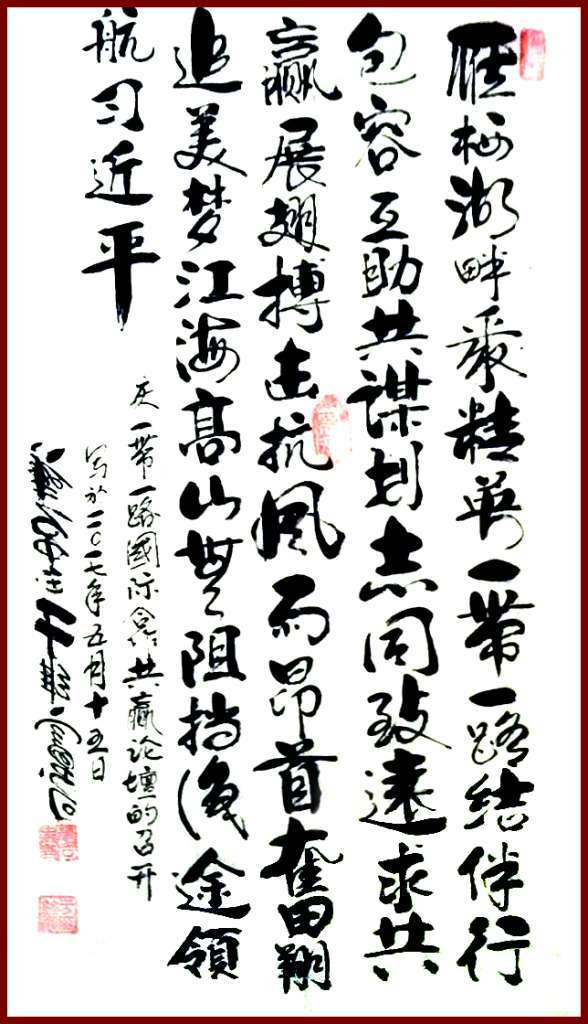 雁栖湖畔聚精英一帶一路结伴行
包容互助共谋划志同致远求共
赢展翅搏击抗风雨昂首奮翔
追美梦江海高山無阻挡途領
航习近平
庆一帶一路國际合作共赢论壇的召开
写於二〇一七年五月十五日